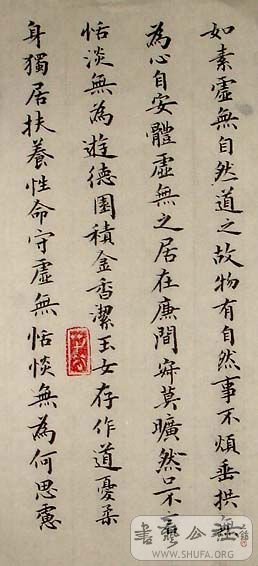 如素虛無自然道之故物有自然事不煩垂拱無
為心自安體虛無之居在廉間寂莫曠然口不言
恬淡無為遊德園積金香潔玉女存作道憂柔
身獨居扶養性命守虛無恬惔無為何思慮
書藝公社
WWW.SHUFA.ORG